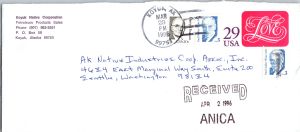 Koyuk Native Corporation
Petroleum Products Sales
Phone (907) 963-3551
P. O. Box 50
Koyuk, Alaska
KOYUK, AK
MAR
29
PM
1996
29
USA
LOVE
AK Native Industries Coop. Assn., Inc.
4634 East Marginal Way South, Suite 200
Seattle, Washington 98134
RECEIVED
APR 2 1996
ANICA